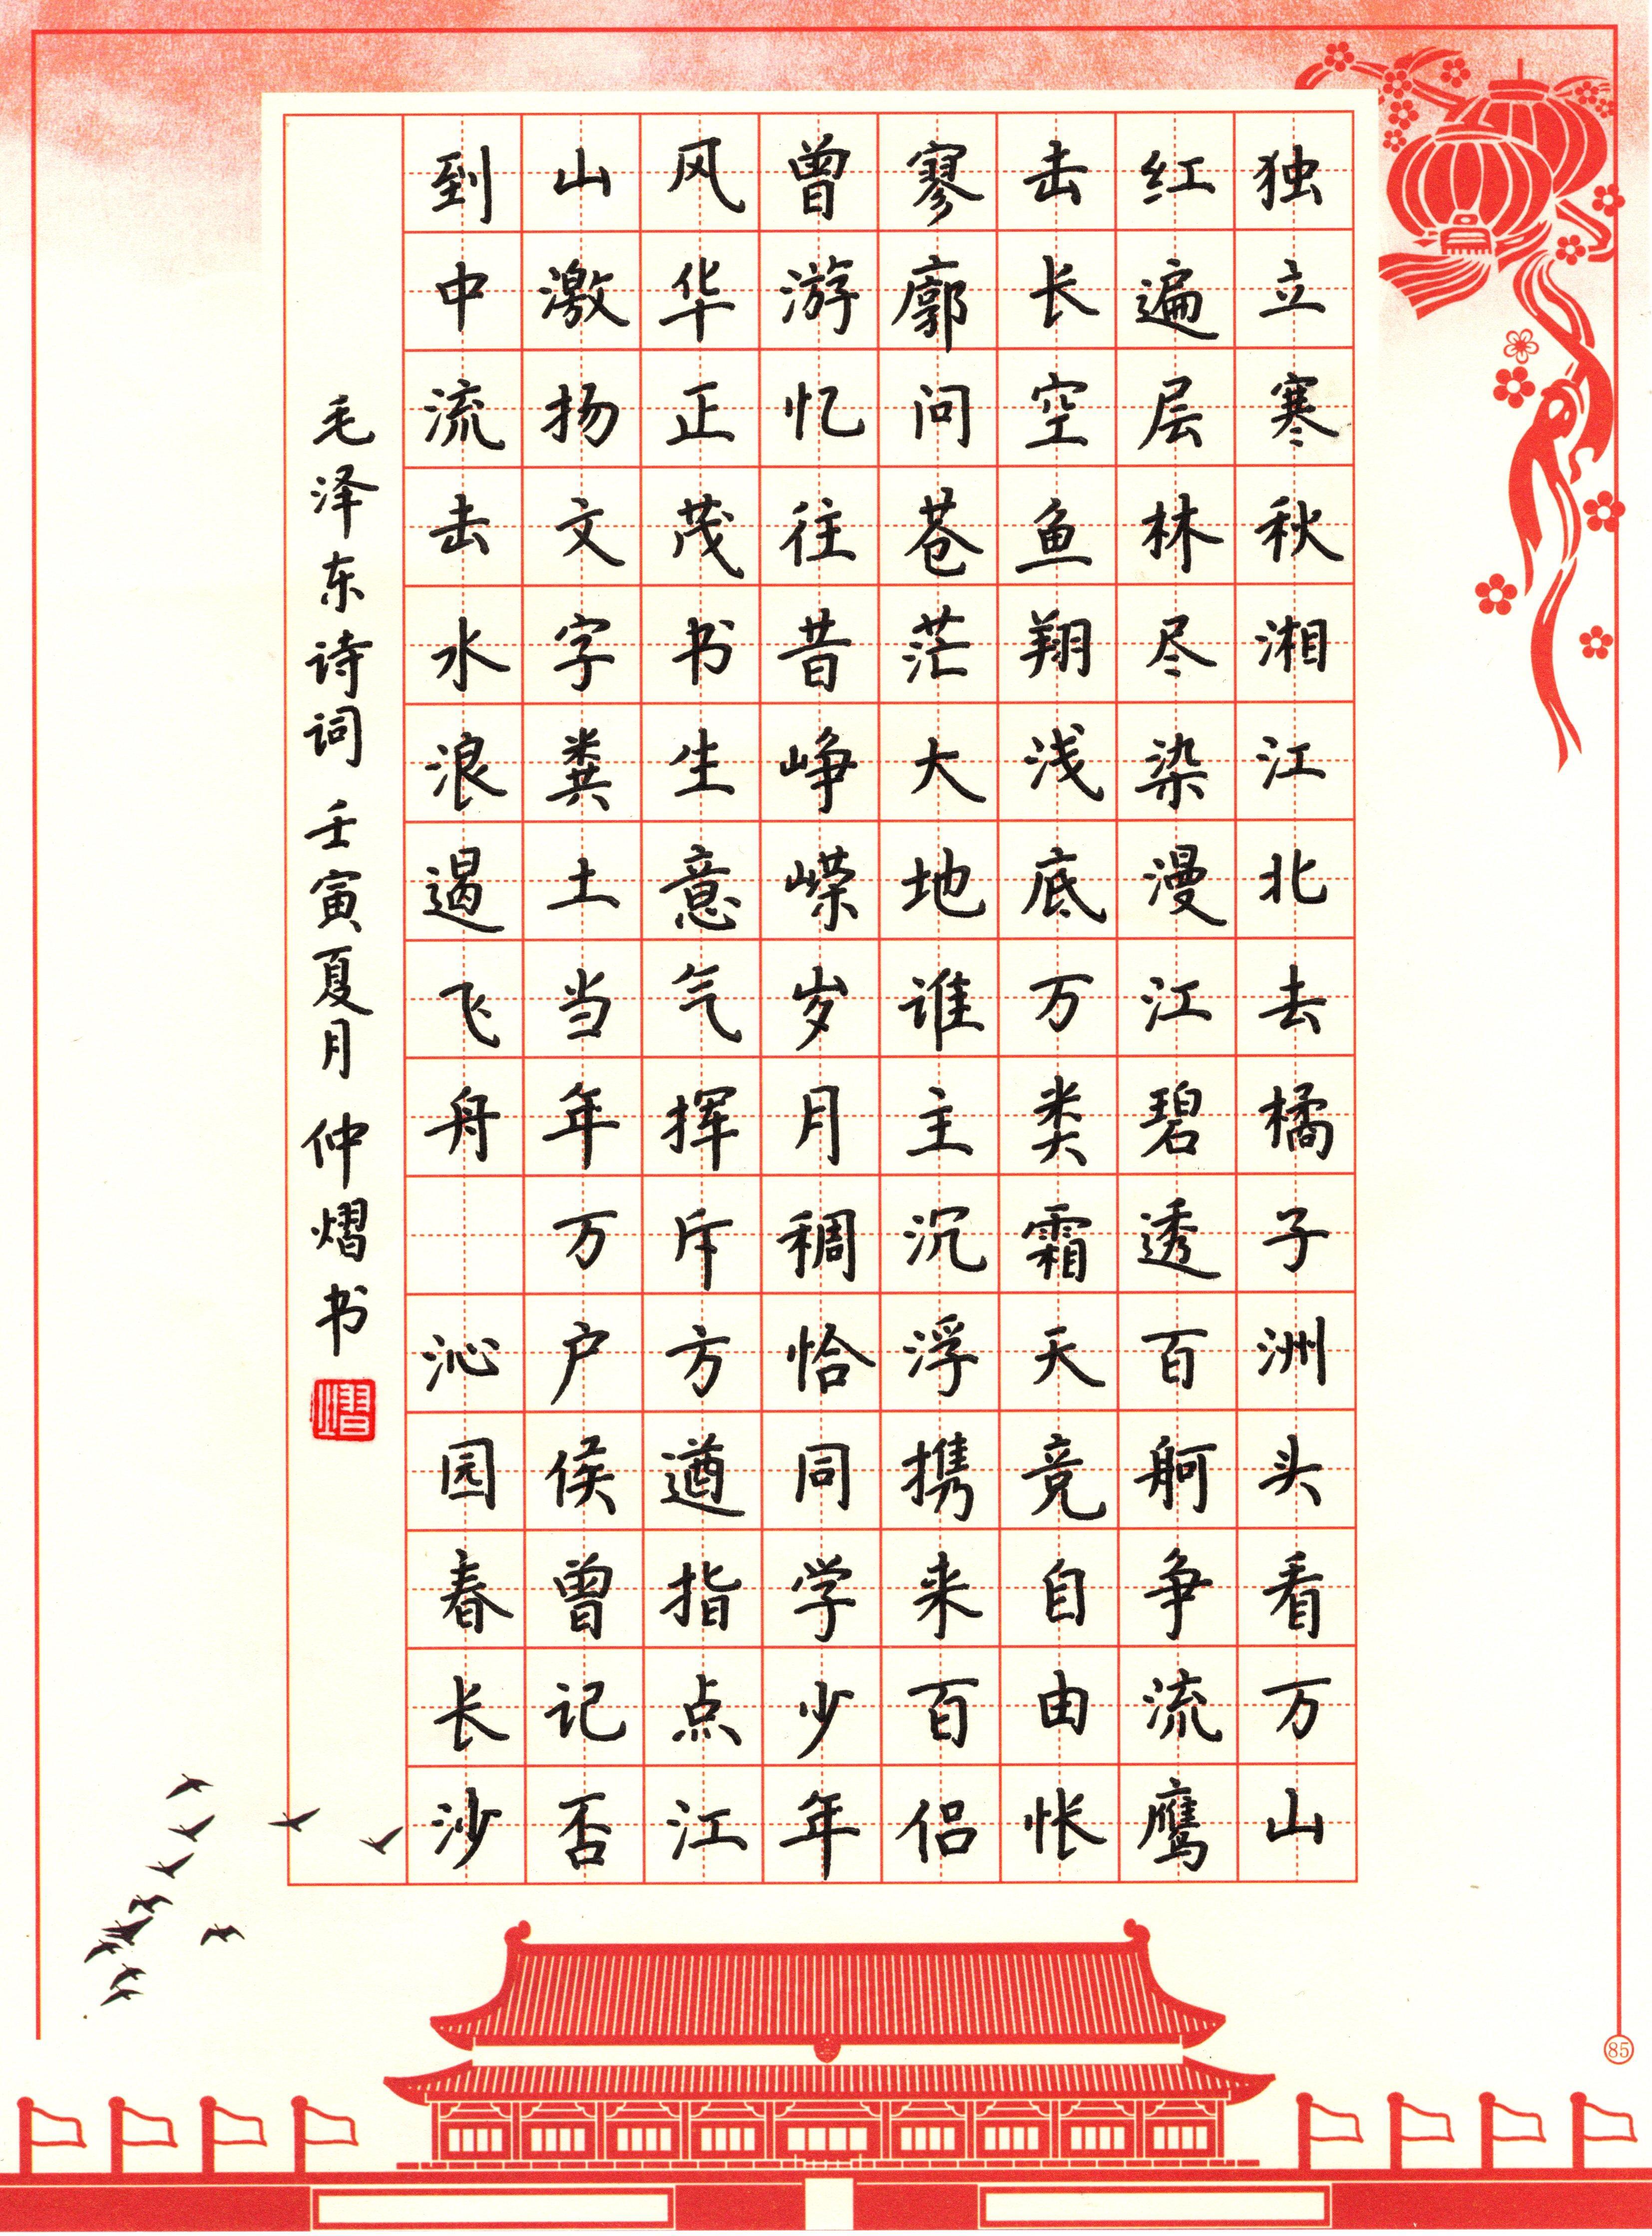 独立寒秋湘江北去橘子洲头看万山
红遍层林尽染漫江碧透百舸争流鹰
击长空鱼翔浅底万类霜天竞自由怅
寥廓问苍茫大地谁主沉浮携来百侣
曾游忆往昔峥嵘岁月稠恰同学少年
风华正茂书生意气挥斥方遒指点江
山激扬文字粪土当年万户侯曾记否
到中流击水浪遏飞舟 沁园春长沙
毛泽东诗词 壬寅夏月 仲熠书
熠
85